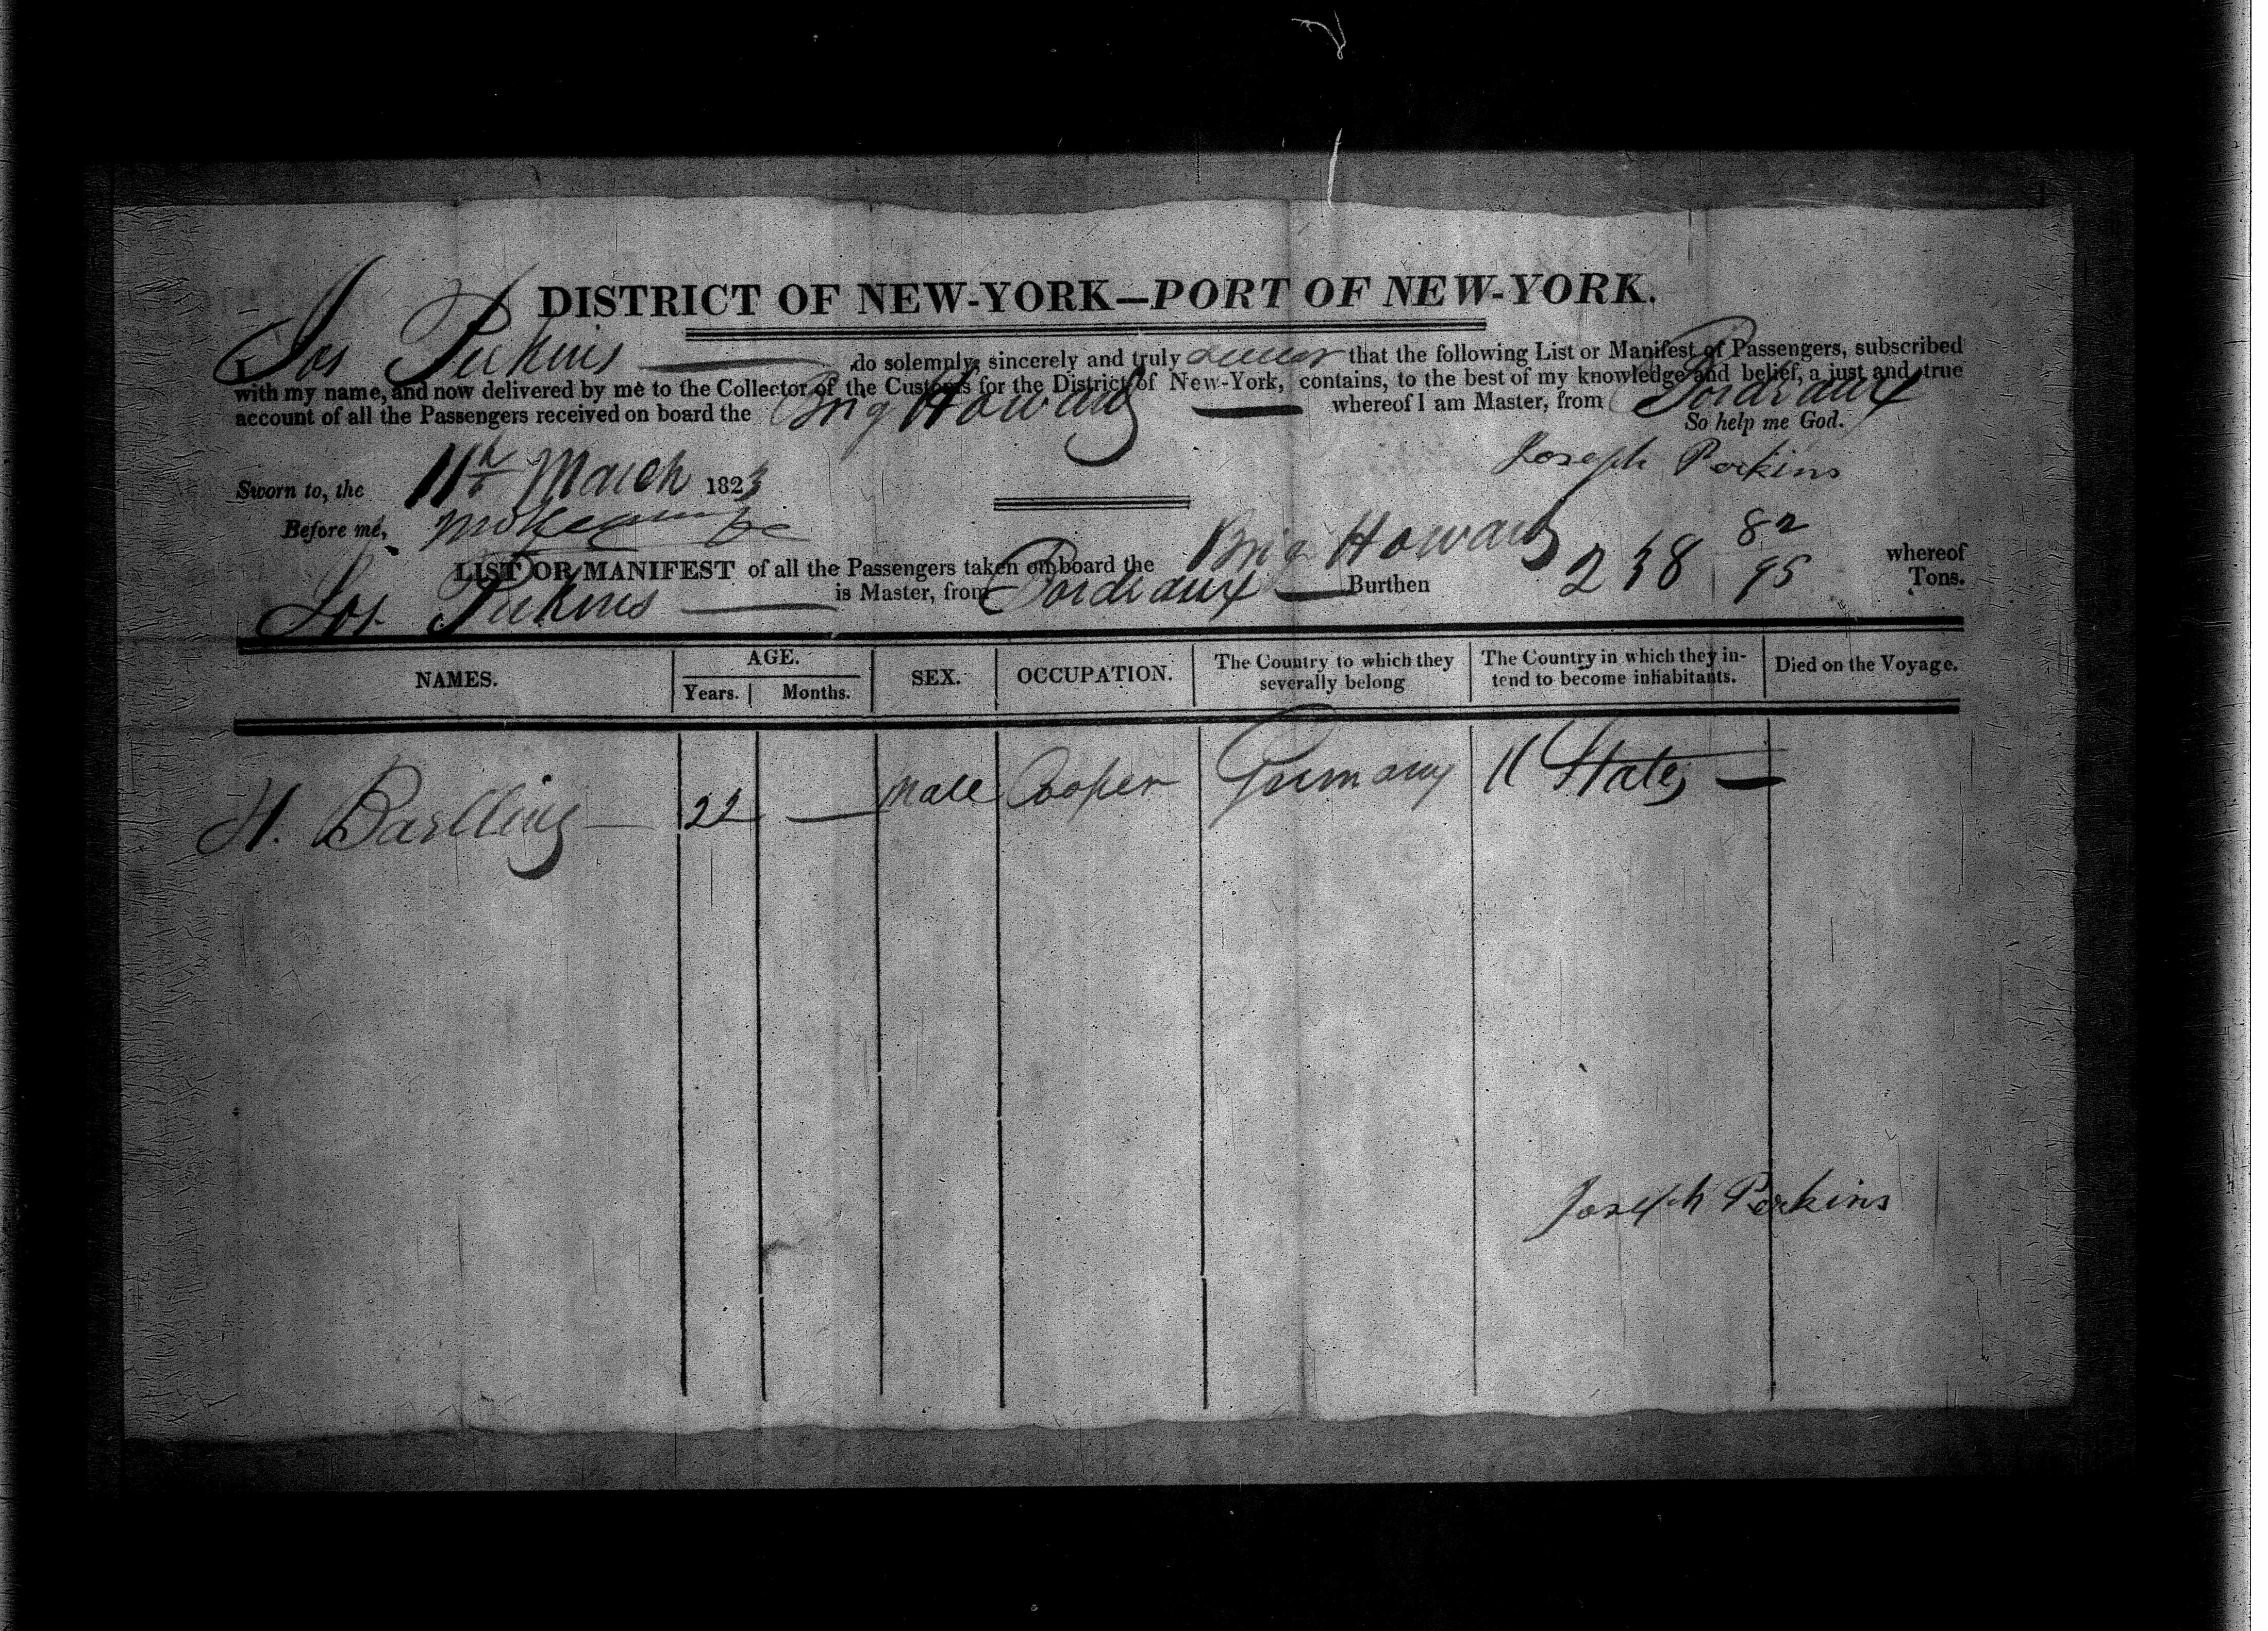 DISTRICT OF NEW-YORK—PORT OF NEW-YORK.
Jos Perkins do solemnly, sincerely and truly swear that the following List or Manifest of Passengers, subscribed
with my name, and now delivered by me to the Collector of the Customs for the District of New-York, contains, to the best of my knowledge and belief, a just and true
account of all the Passengers received on board the Brig Howard — whereof I am Master, from Bordeaux
So help me God.
Joseph Perkins
Sworn to, the 11th March 1823
Before me,
LIST OR MANIFEST of all the Passengers taken on board the Brig Howard whereof
Jos. Perkins — is Master, from Bordeaux — Burthen 238 82/95 Tons.
NAMES. AGE. Years. Months. SEX. OCCUPATION. The Country to which they severally belong The Country in which they in- tend to become inhabitants. Died on the Voyage.
H. Bartling — 22 — Male Cooper Germany U States —
Joseph Perkins